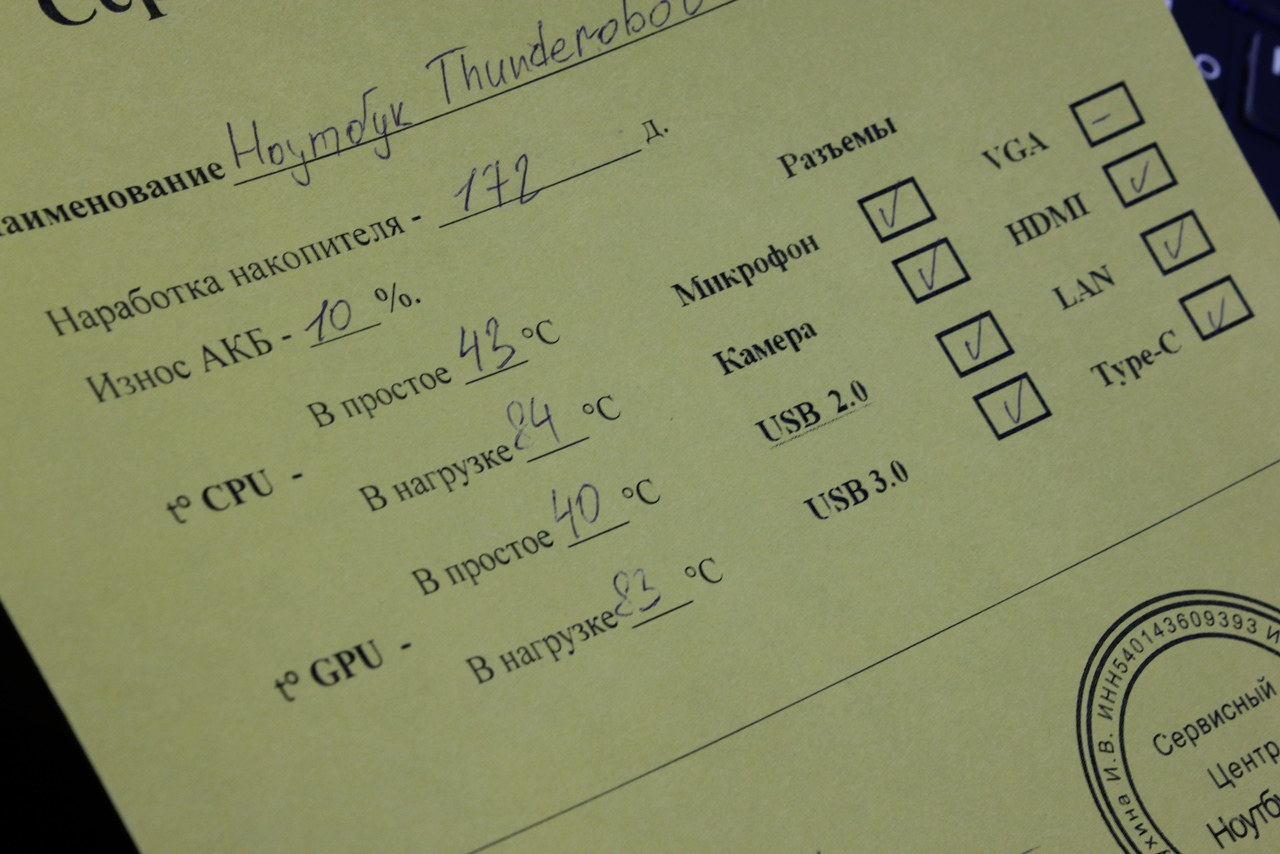 Сер
Наименование Ноутбук Thunderobot
Наработка накопителя - 172 д.
Износ АКБ - 10 %.
t° CPU -
В простое 43 °C
В нагрузке 84 °C
t° GPU -
В простое 40 °C
В нагрузке 83 °C
Разъемы
Микрофон ✓
Камера ✓
USB 2.0 ✓
USB 3.0 ✓
VGA –
HDMI ✓
LAN ✓
Type-C ✓
хина И.В. ИНН540143609393 И
Сервисный
Центр
Ноутбу